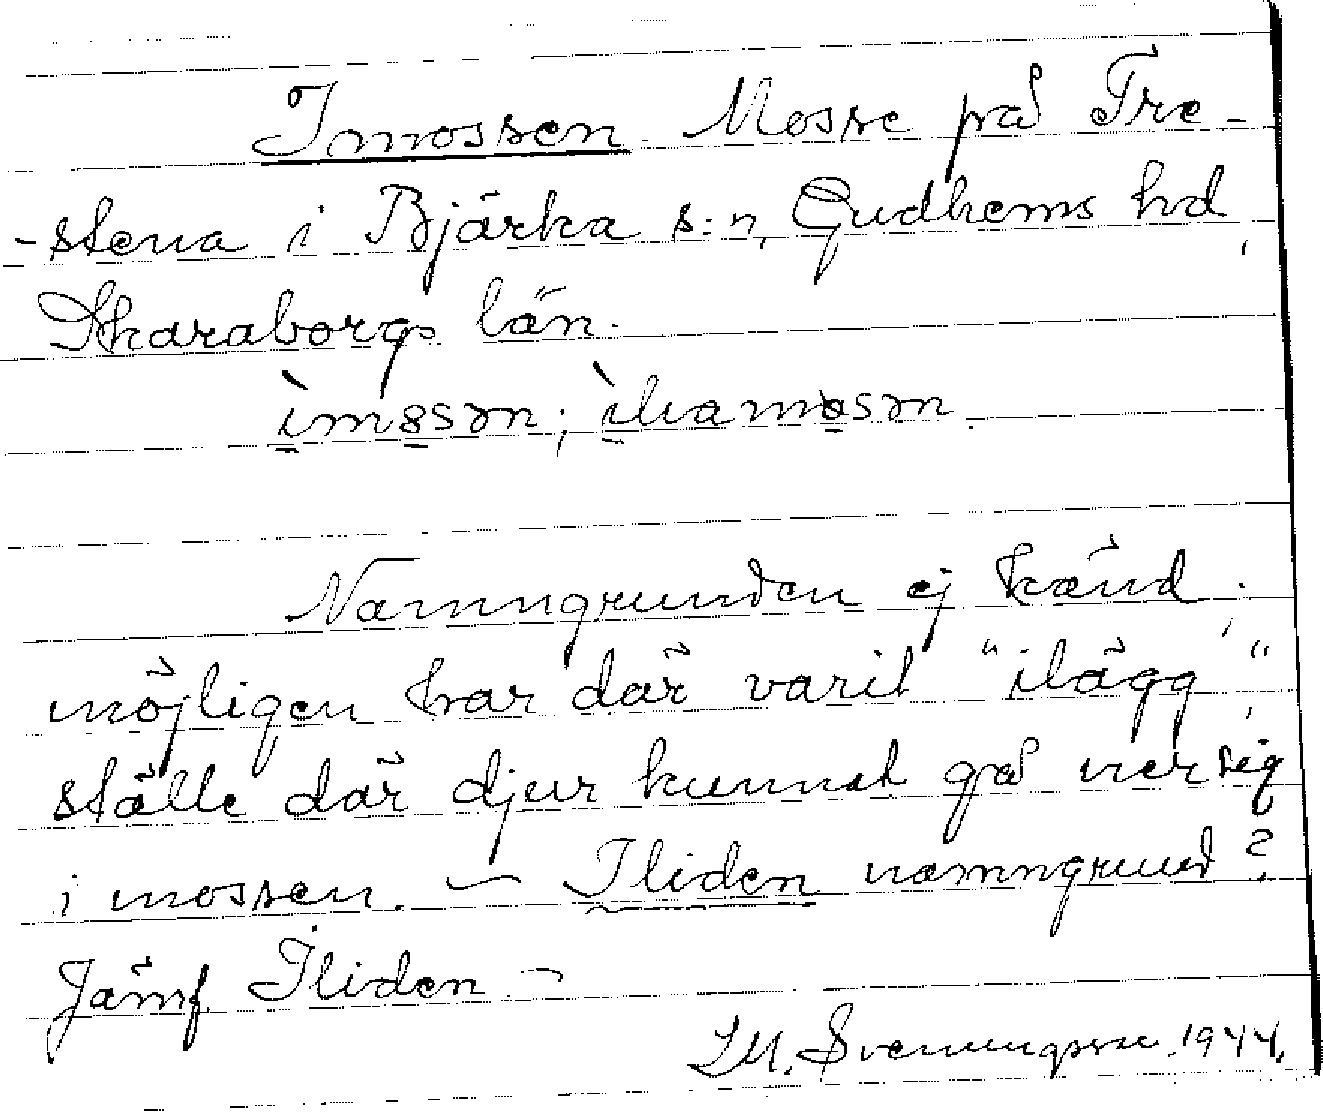 Imossen. Mosse på Tre-
-stena i Bjärka s:n, Gudhems hd,
Skaraborgs län.
ìmosən; ìhamosən.
Namngrunden ej känd;
möjligen har där varit "ilägg",
ställe där djur kunnat gå ner sig
i mossen. — Iliden namngrund?
Jämf. Iliden. —
I.M. Svenungsson 1944.